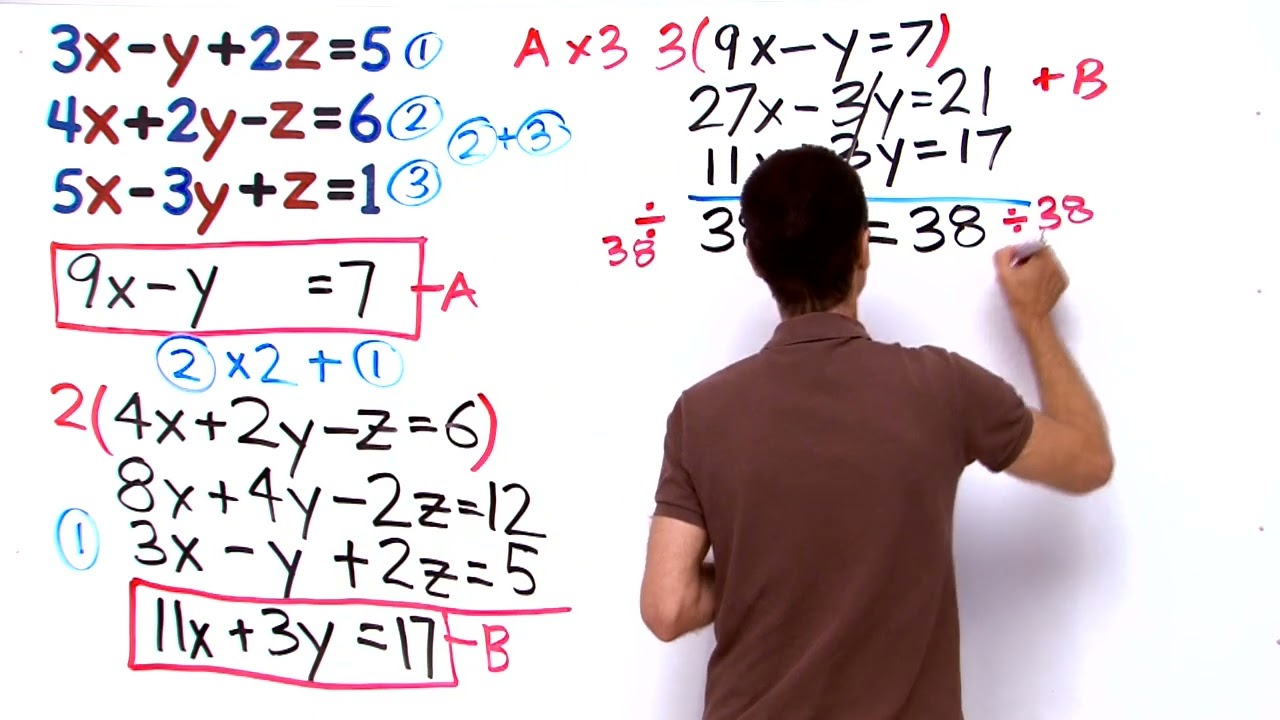 3x-y+2z=5 ①
4x+2y-z=6 ②
5x-3y+z=1 ③
②+③
9x-y =7 -A
②x2+①
2(4x+2y-z=6)
8x+4y-2z=12
① 3x-y+2z=5
11x+3y=17 -B
Ax3 3(9x-y=7)
27x-3y=21 +B
11 3y=17
÷38 3 =38 ÷38